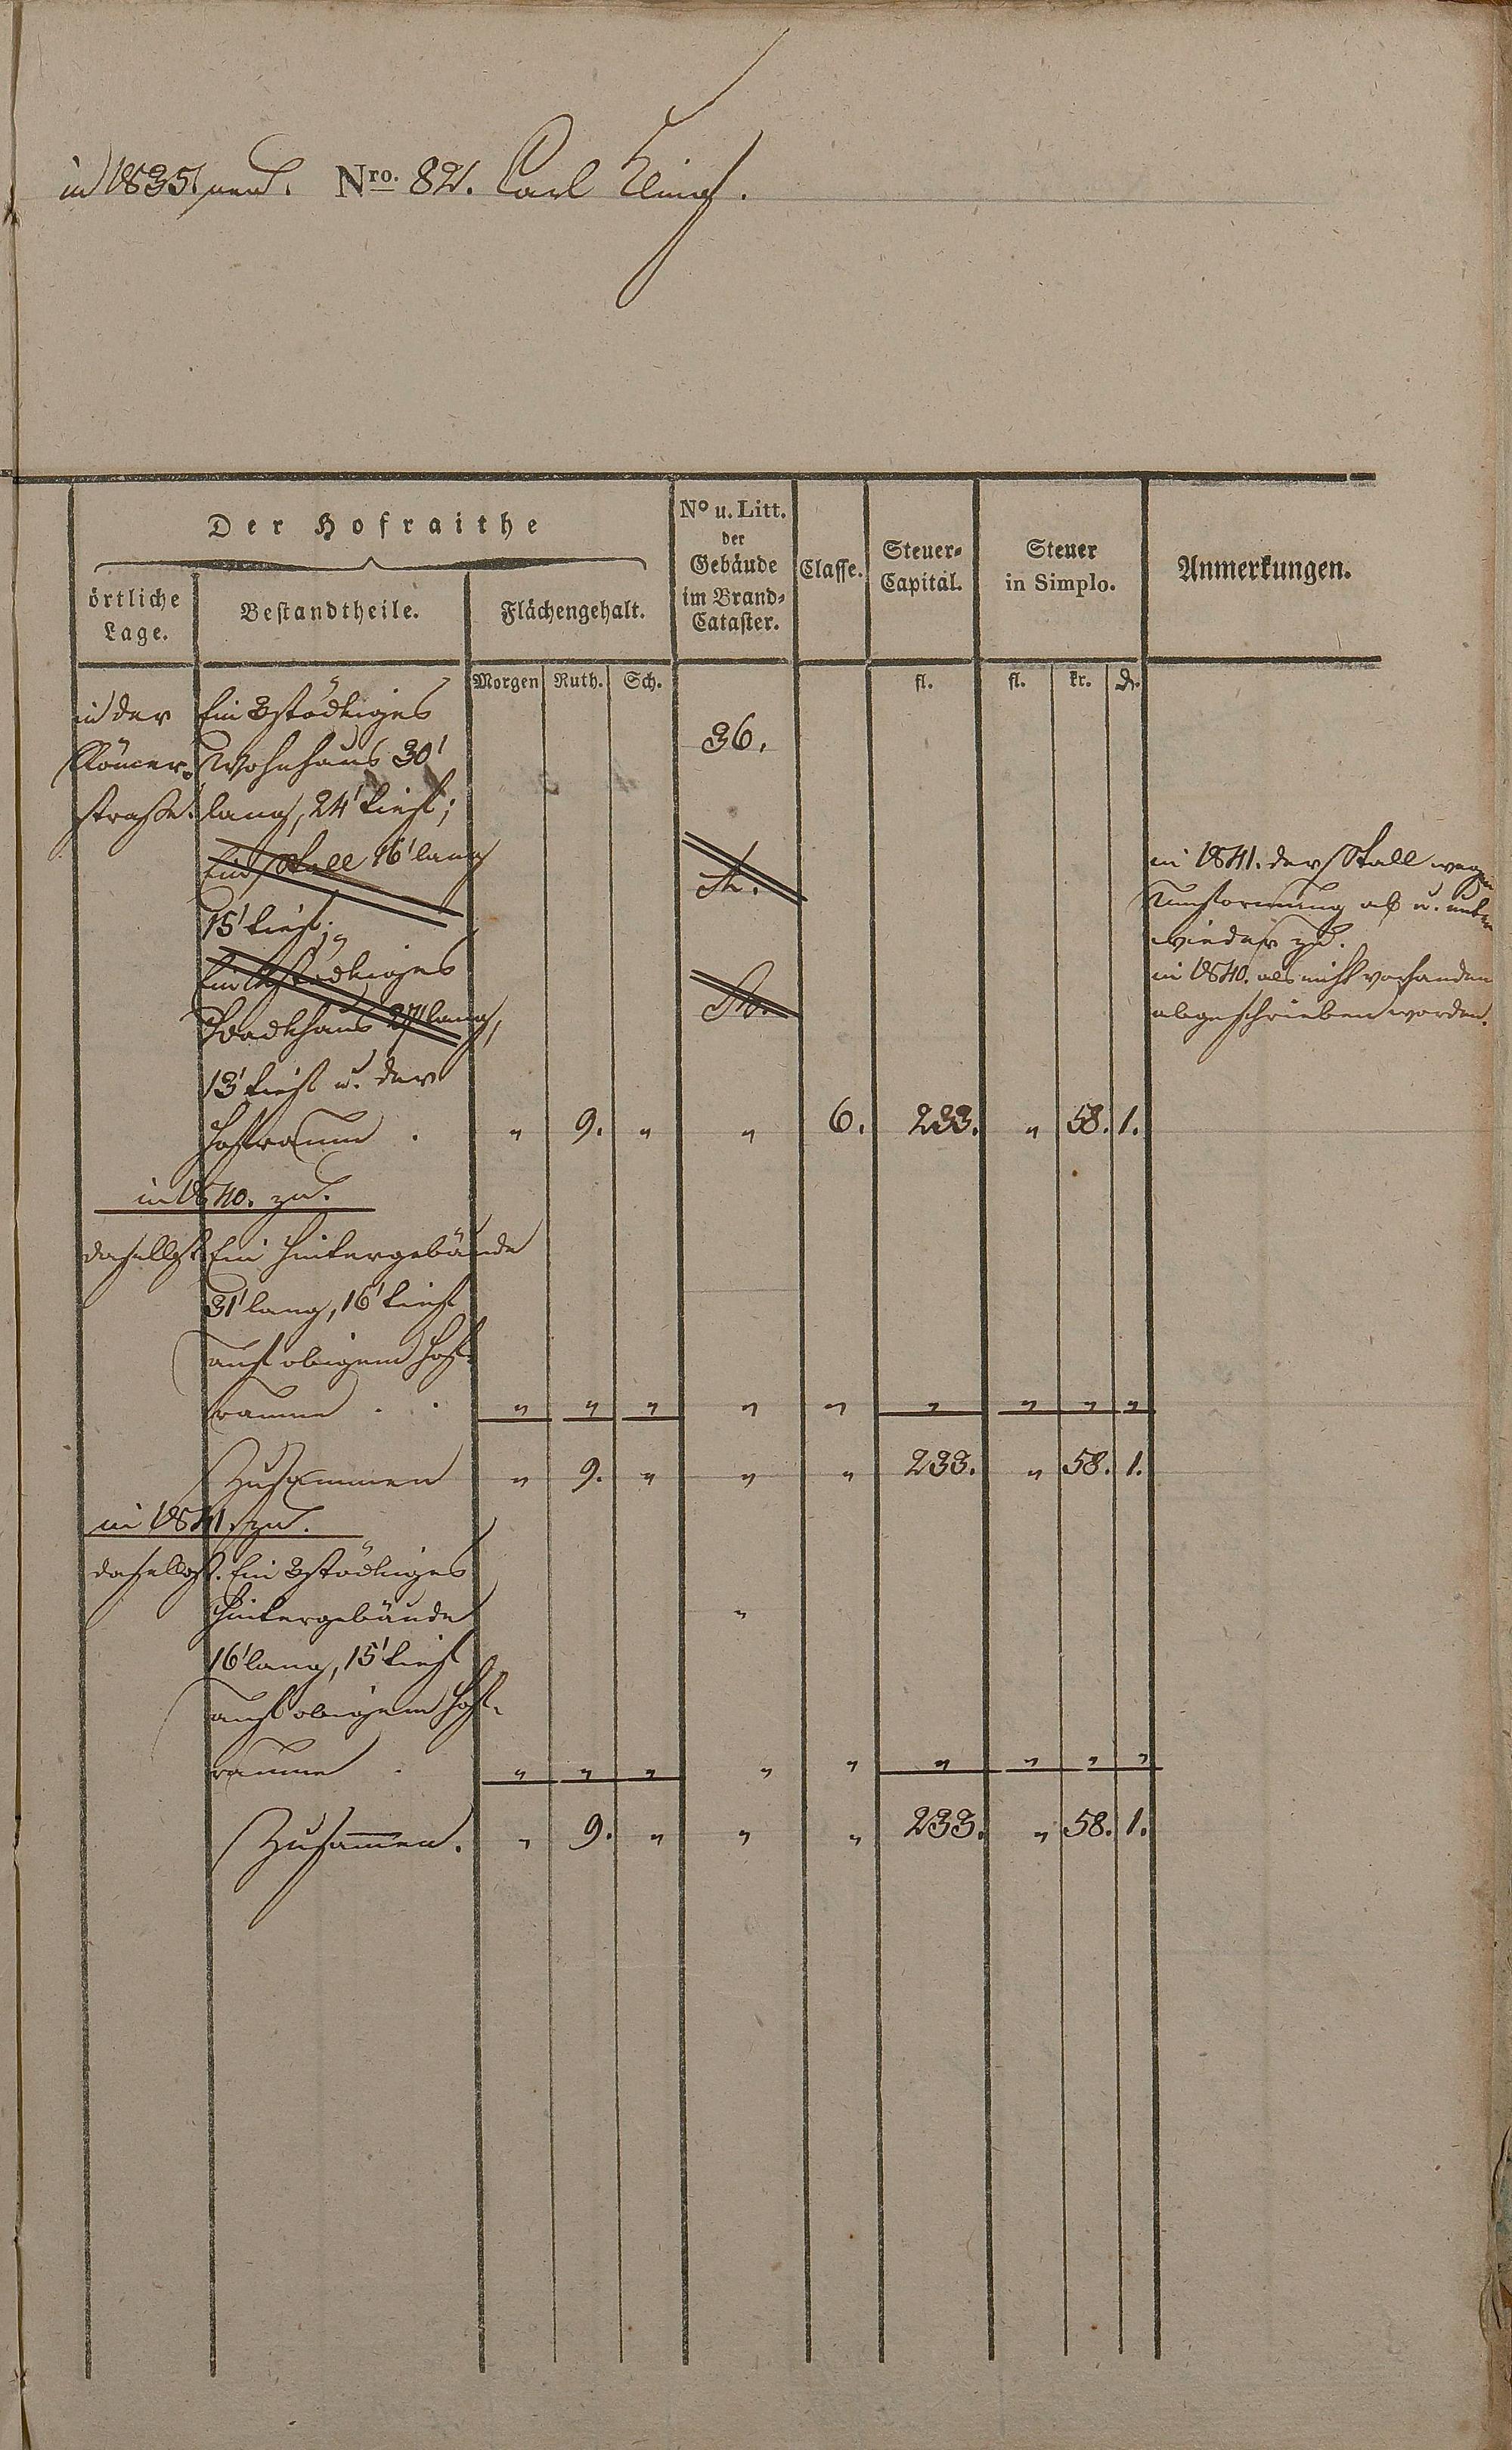 in 1835. neu. Nro. 82. Carl Kling.
Der Hofraithe
örtliche Lage.
Bestandtheile.
Flächengehalt.
No u. Litt. der Gebäude im Brand-Cataster.
Classe.
Steuer-Capital.
Steuer in Simplo.
Anmerkungen.
Morgen Ruth. Sch. fl. fl. kr. dr.
in der Ein 2stöckiges
Römer- Wohnhaus 30' 36.
straße. lang, 24' tief;
Ein Stall 16' lang
15' tief;
Ein stöckiges
Backhaus 27' lang,
13' tief u. der
Hofraum . " 9. " " 6. 233. " 58. 1.
in 1841. der Stall wegen
Umformung ab u. unten
wieder zu.
in 1840. als nicht vorhanden
abgeschrieben worden.
in 1840. zu.
daselbst Ein Hintergebäude
31' lang, 16' tief
auf obigem Hof-
raume . . " " " " " " " " "
Zusammen " 9. " " " 233. " 58. 1.
in 1841. zu.
daselbst. Ein 2stöckiges
Hintergebäude "
16' lang, 15' tief
auf obigem Hof-
raume . " " " " " " " " "
Zusammen. " 9. " " " 233. " 58. 1.